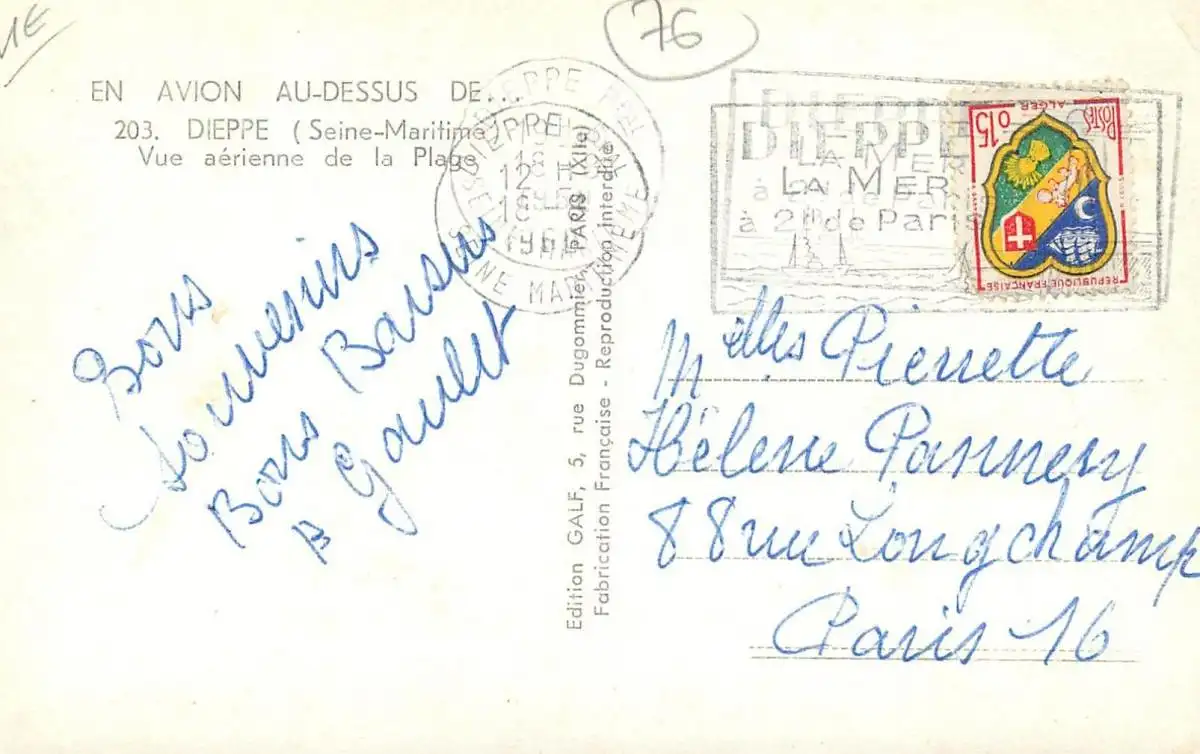 1E
76
EN AVION AU-DESSUS DE...
203. DIEPPE (Seine-Maritime)
Vue aérienne de la Plage
Bons
Souvenirs
Bons Baisers
B Gaullet
Edition GALF, 5, rue Dugommier, PARIS (XIIe)
Fabrication Française - Reproduction interdite
DIEPPE PAL
SEINE MARITIME
12 H
18
196
DIEPPE
LA MER
à 2H de Paris
POSTES
0,15
ALGER
REPUBLIQUE FRANÇAISE
Melles Pierrette
Hélène Pannery
88 rue Longchamp
Paris 16